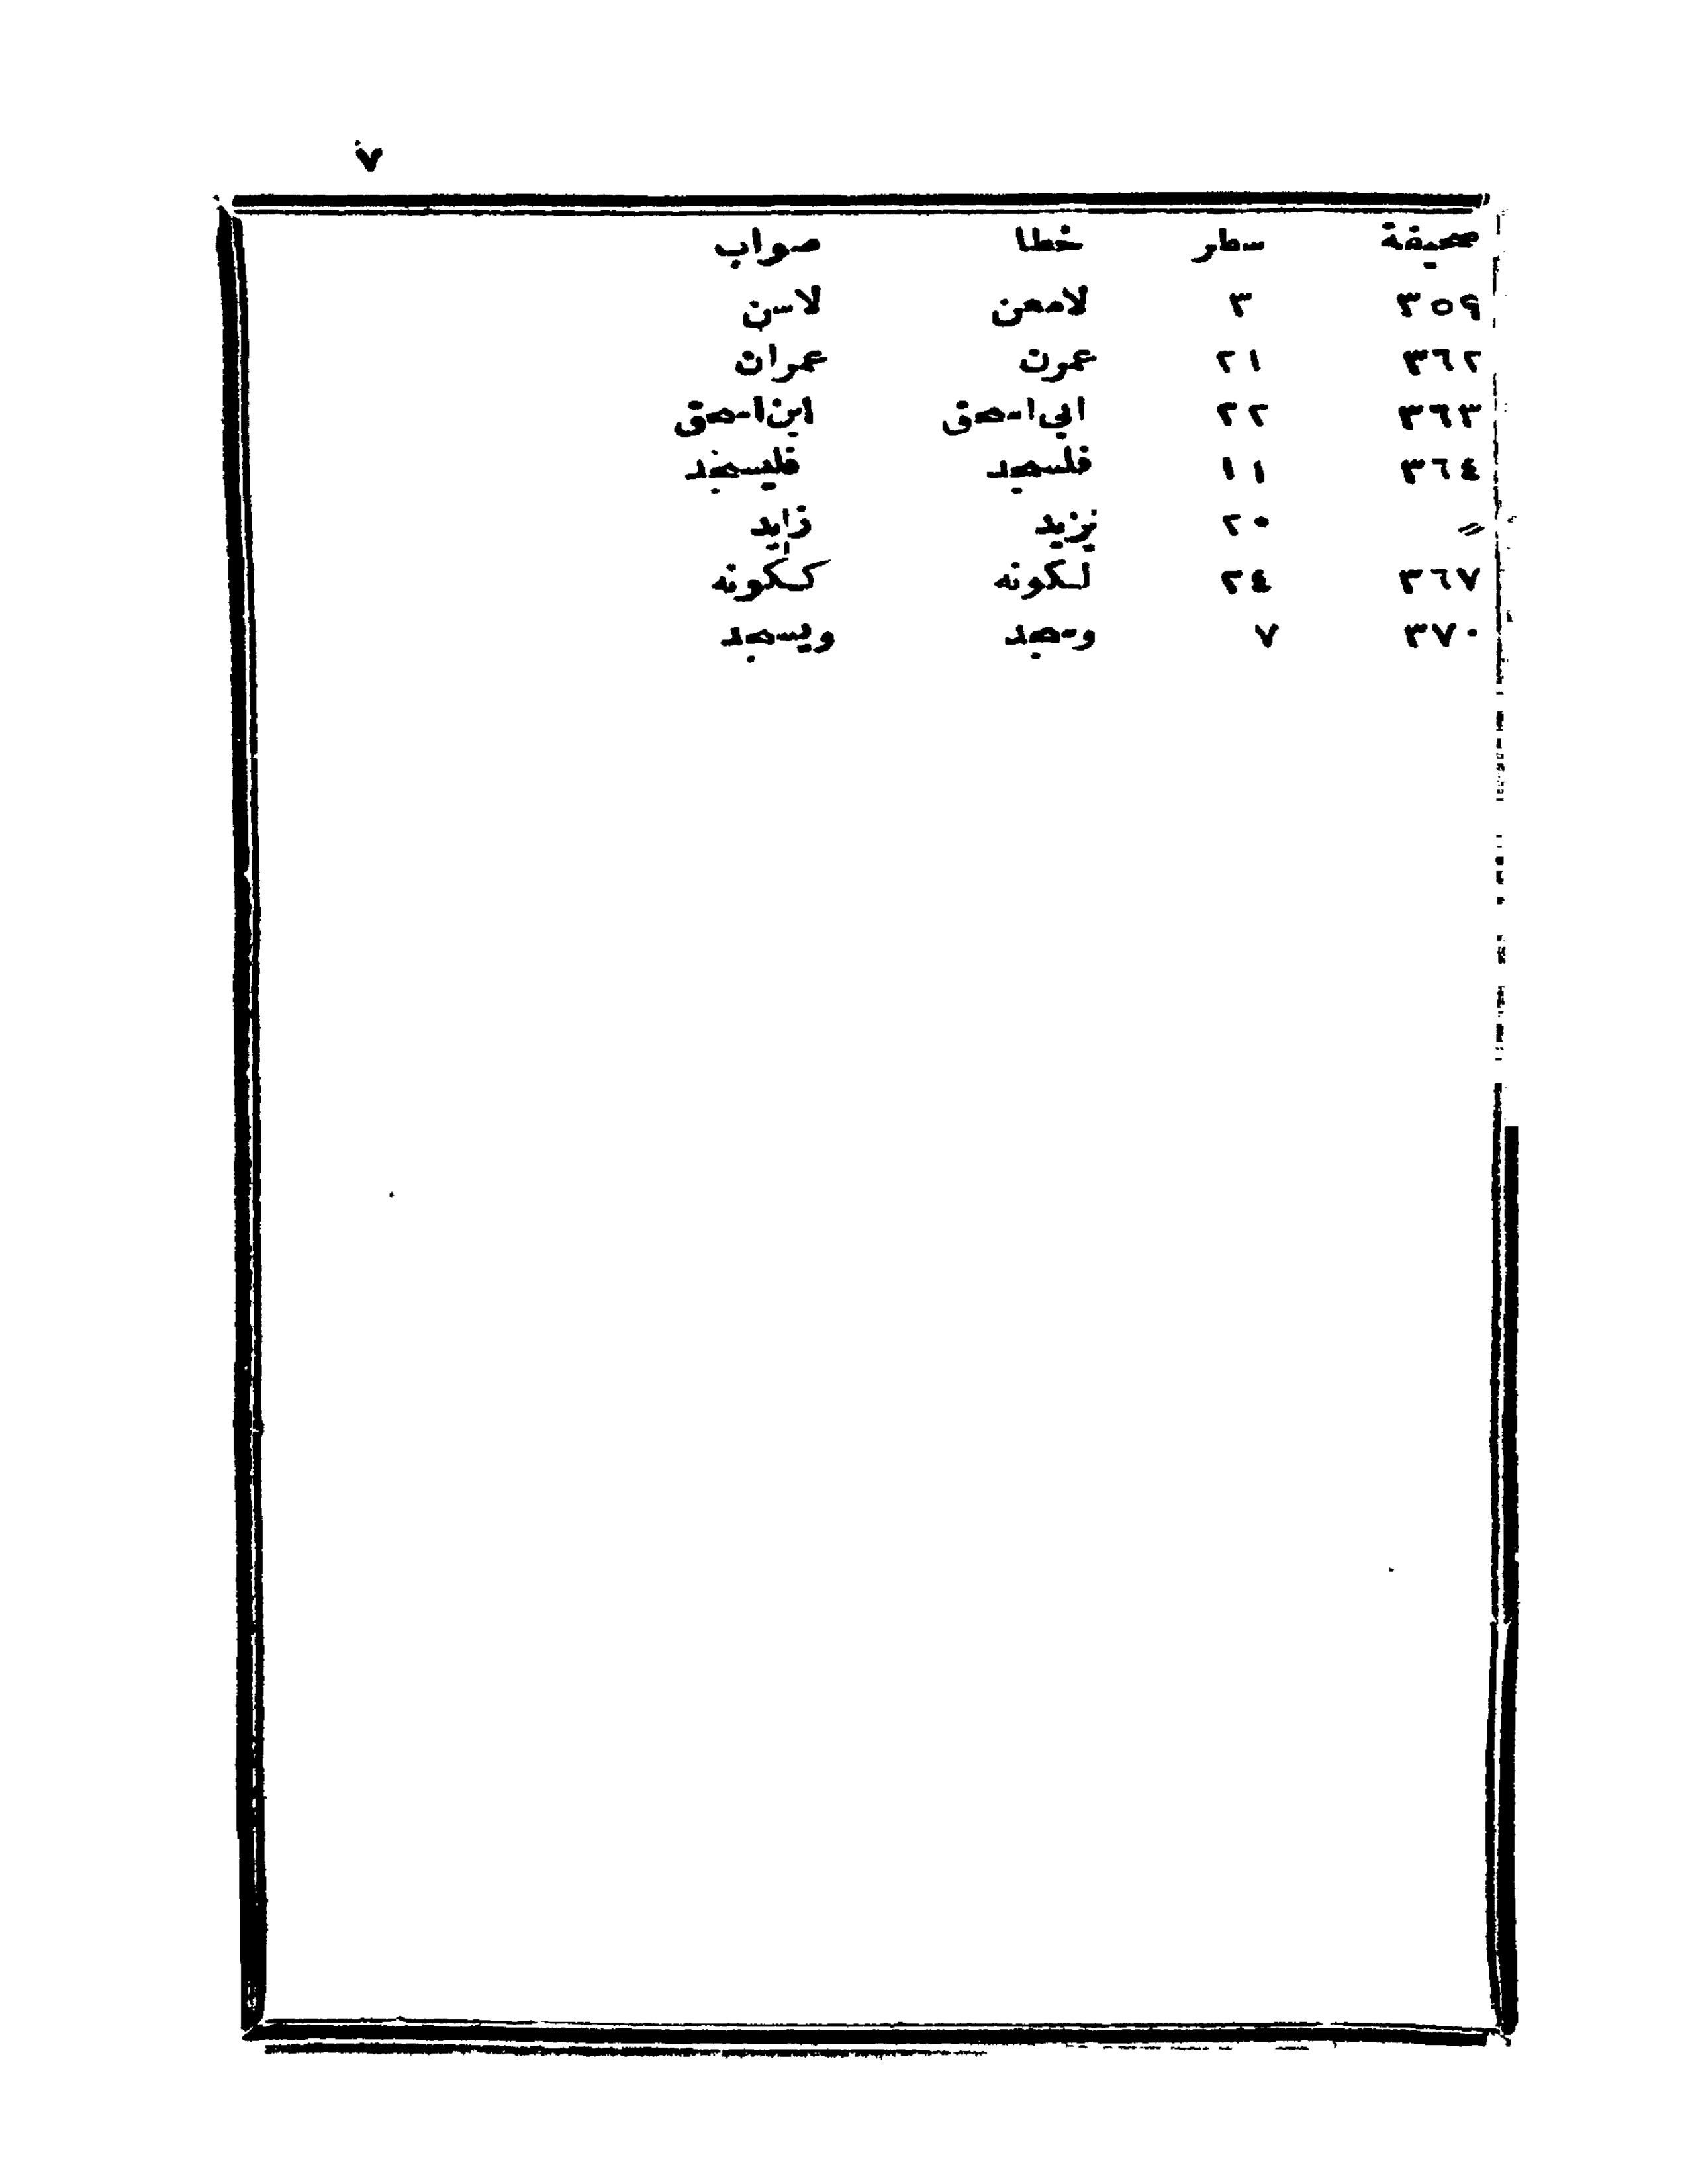 ٧
صحيفة سطر خطا صواب
٣٥٩ ٣ لامعن لاسن
٣٦٢ ٢١ عمرت عمران
٣٦٣ ٢٢ ابى اسحق ابن اسحق
٣٦٤ ١١ فلسجد فليسجد
〃 ٢٠ نزيد زايد
٣٦٧ ٢٤ لكونه ككونه
٣٧٠ ٧ وسجد ويسجد